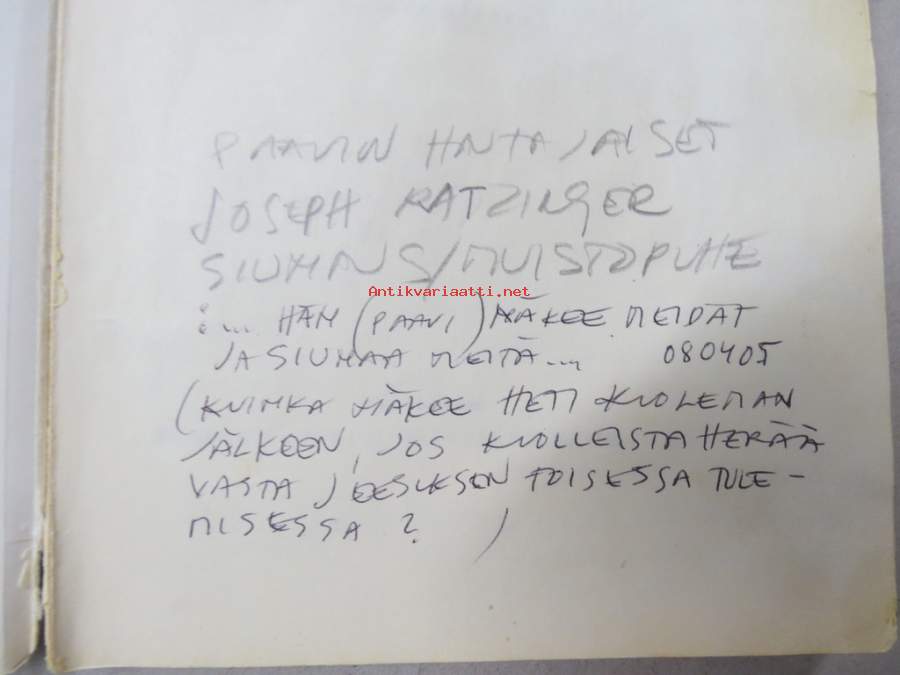 PAAVIN HAUTAJAISET
JOSEPH RATZINGER
SIUNAUS/MUISTOPUHE
Antikvariaatti.net
:... HÄN (PAAVI) NÄKEE MEIDÄT
JA SIUNAA MEITÄ... 080405
(KUINKA NÄKEE HETI KUOLEMAN
JÄLKEEN, JOS KUOLLEISTA HERÄÄ
VASTA JEESUKSEN TOISESSA TULE-
MISESSA? )